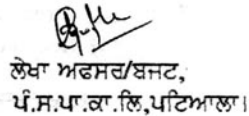 ਲੇਖਾ ਅਫਸਰ/ਬਜਟ,
ਪੰ.ਸ.ਪਾ.ਕਾ.ਲਿ,ਪਟਿਆਲਾ।